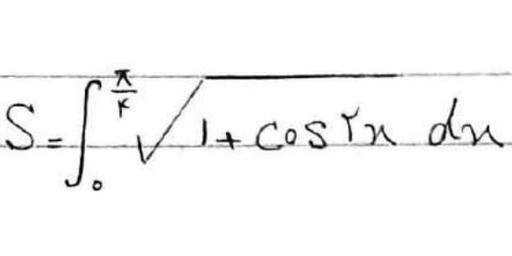 S = ∫₀^{π/۴} √(1 + cos ۲x) dx